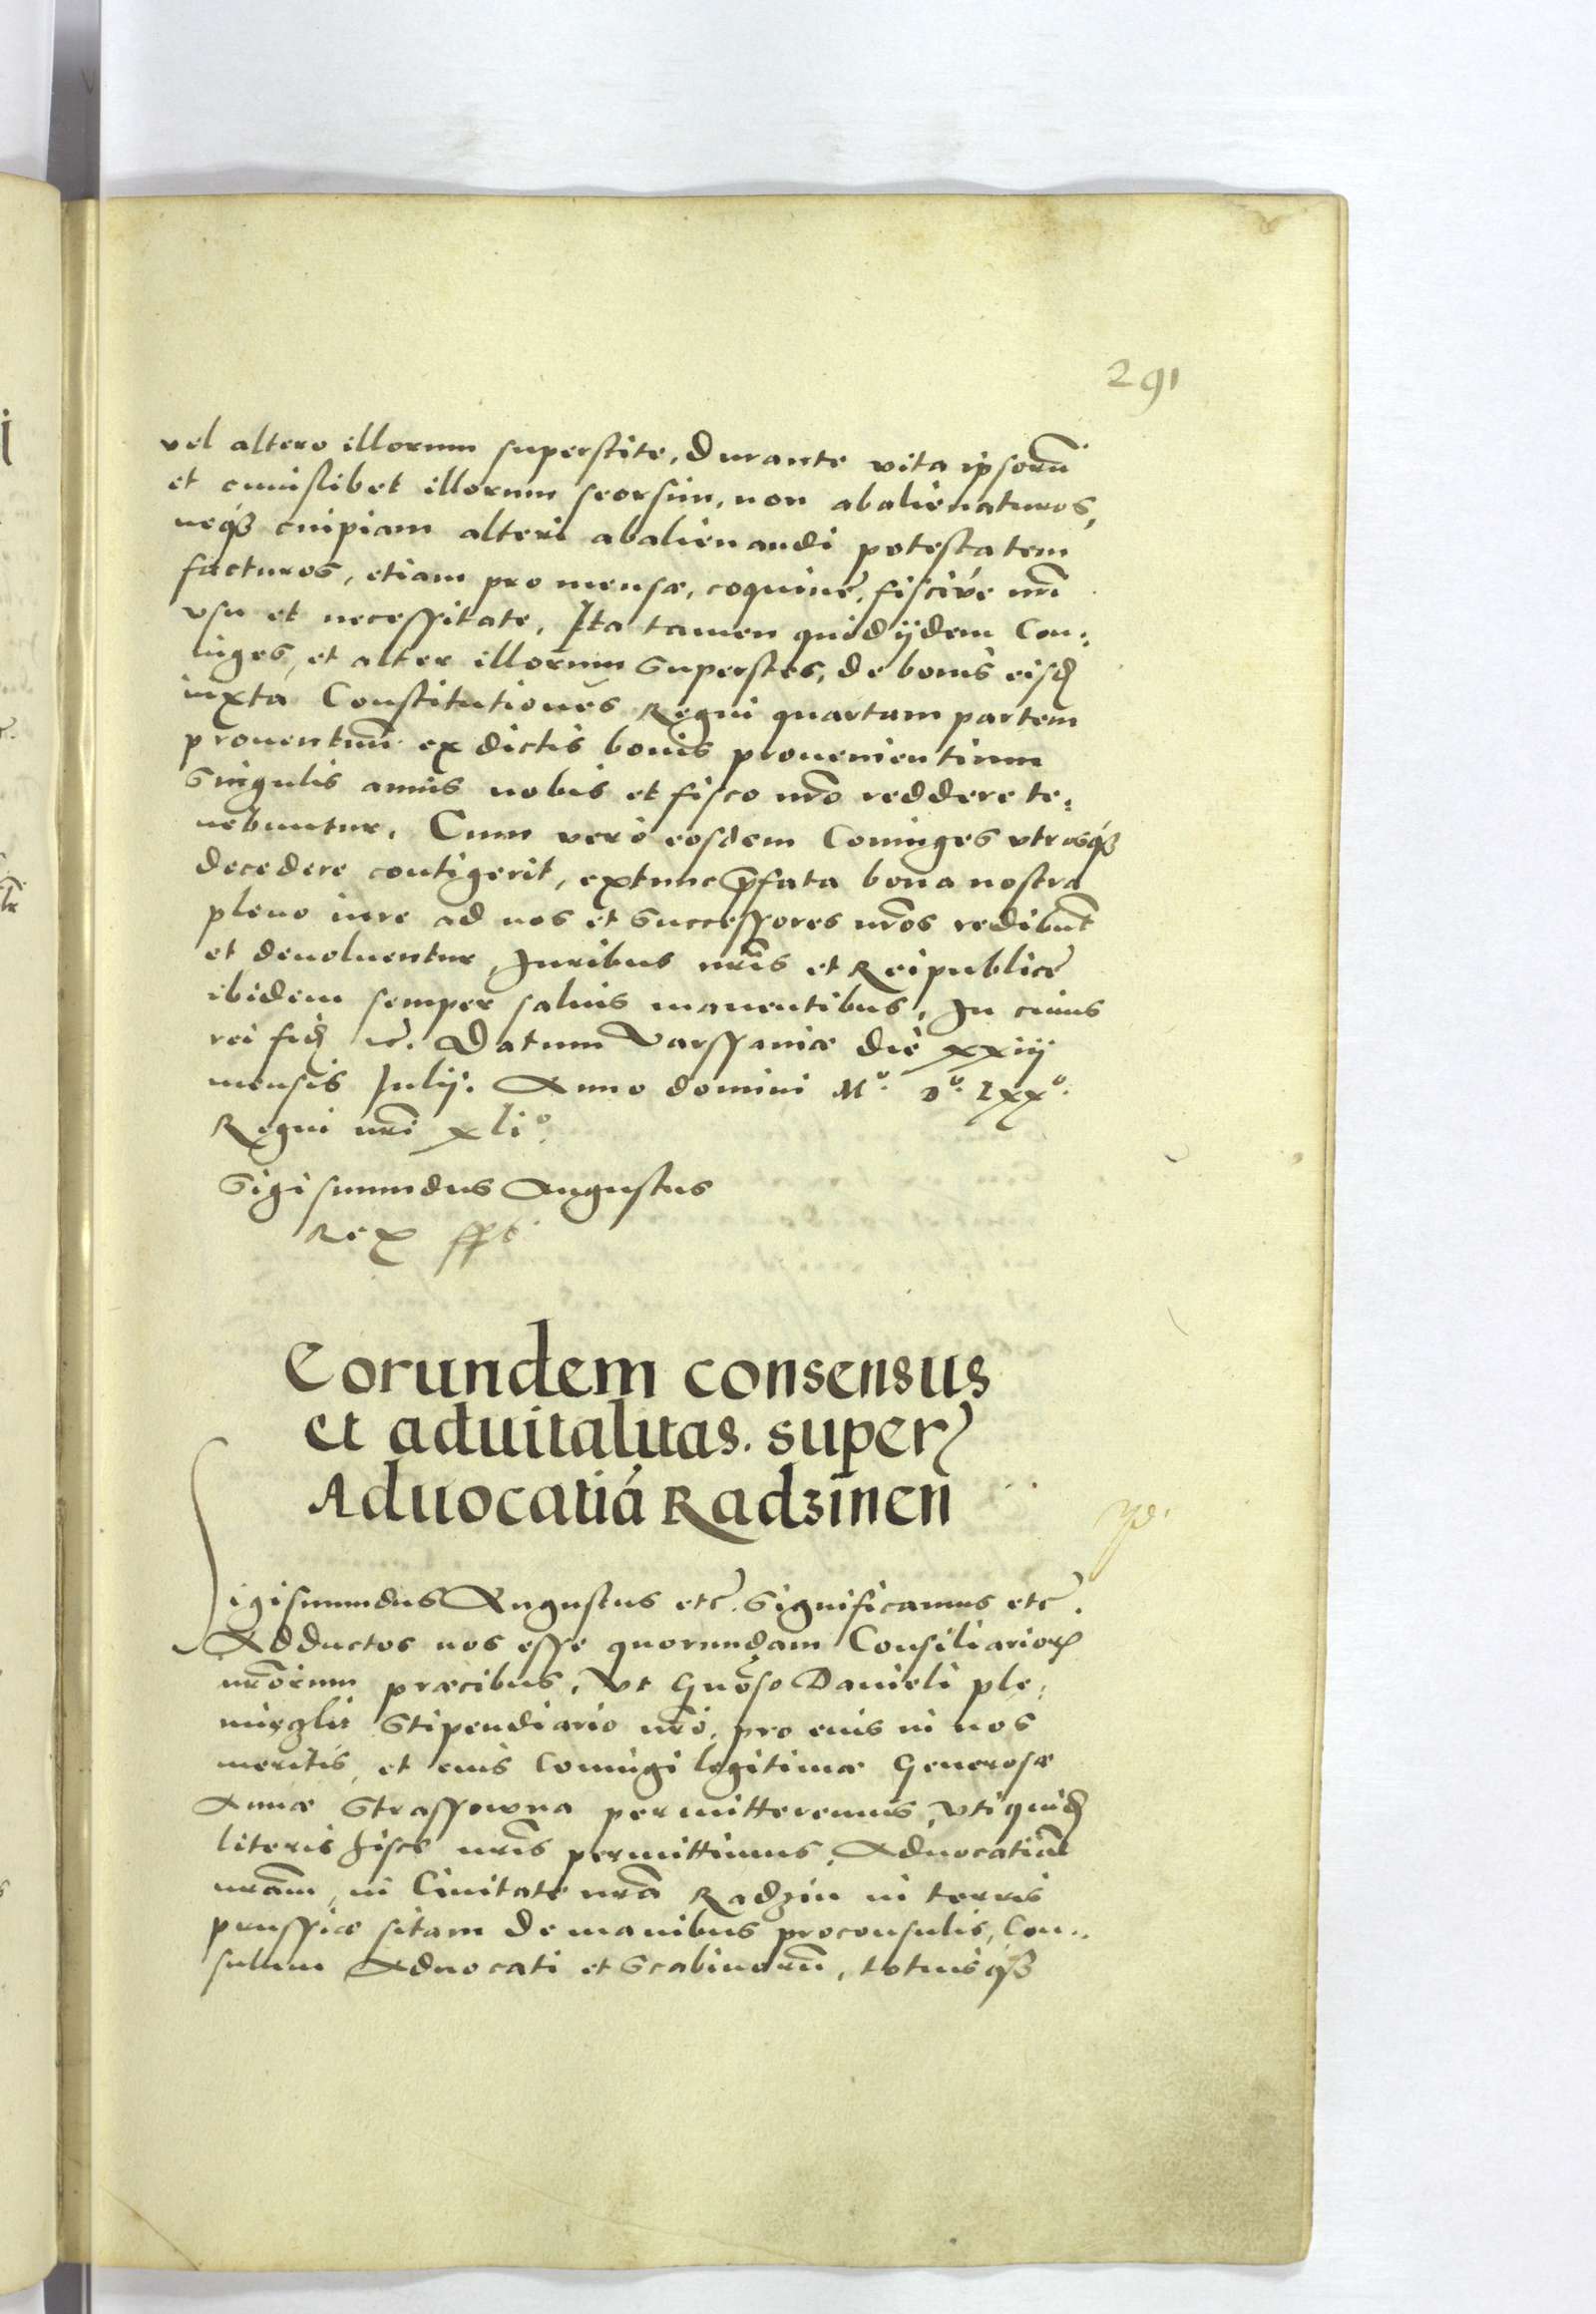 291
vel altero illorum superstite, durante vita ipsorũ
et cuiuslibet illorum seorsim, non abalienaturos,
neqȝ cuipiam alteri abalienandi potestatem
facturos, etiam pro mensæ, coquinę, fisciue nrĩ
vsu et necessitate, Ita tamen quod ijdem Con:
iuges, et alter illorum superstes, de bonis eisd
iuxta Constitutiones Regni quartam partem
prouentuũ ex dictis bonis prouenientium
singulis annis nobis et fisco nrõ reddere te:
nebuntur. Cum vero eosdem Coniuges vtrosqȝ
decedere contigerit, extunc p̃fata bona nostra
pleno iure ad nos et successores nrõs redibunt
et deuoluentur, Juribus nrĩs et Reipublicę
ibidem semper saluis manentibus, In cuius
rei fid etc. Datum Varssauiæ die xxiij
mensis Julij. Anno domini Mº. Dº. Lxxº.
Regni nrĩ xliº.
Sigismundus Augustus
Rex sspt
Eorundem consensus
et aduitalitas. super
Aduocatiã Radzinen
Sigismundus Augustus etc̃. Significamus etc̃.
Adductos nos esse quorundam Consiliarioꝝ
nrõrum præcibus, Vt Gnõso Danieli ple:
Stipendiario nrõ, pro eius in nos
meritis, et eius Coniugi legitimæ Generosæ
Annæ Strassowna permitteremus, vti quid
literis hisce nrĩs permittimus, Aduocatiam
nrãm, in Ciuitate nrã Radzin in terris
prussiæ sitam de manibus proconsulis, Con:
sulum Aduocati et Scabinorũ, totiusqȝ